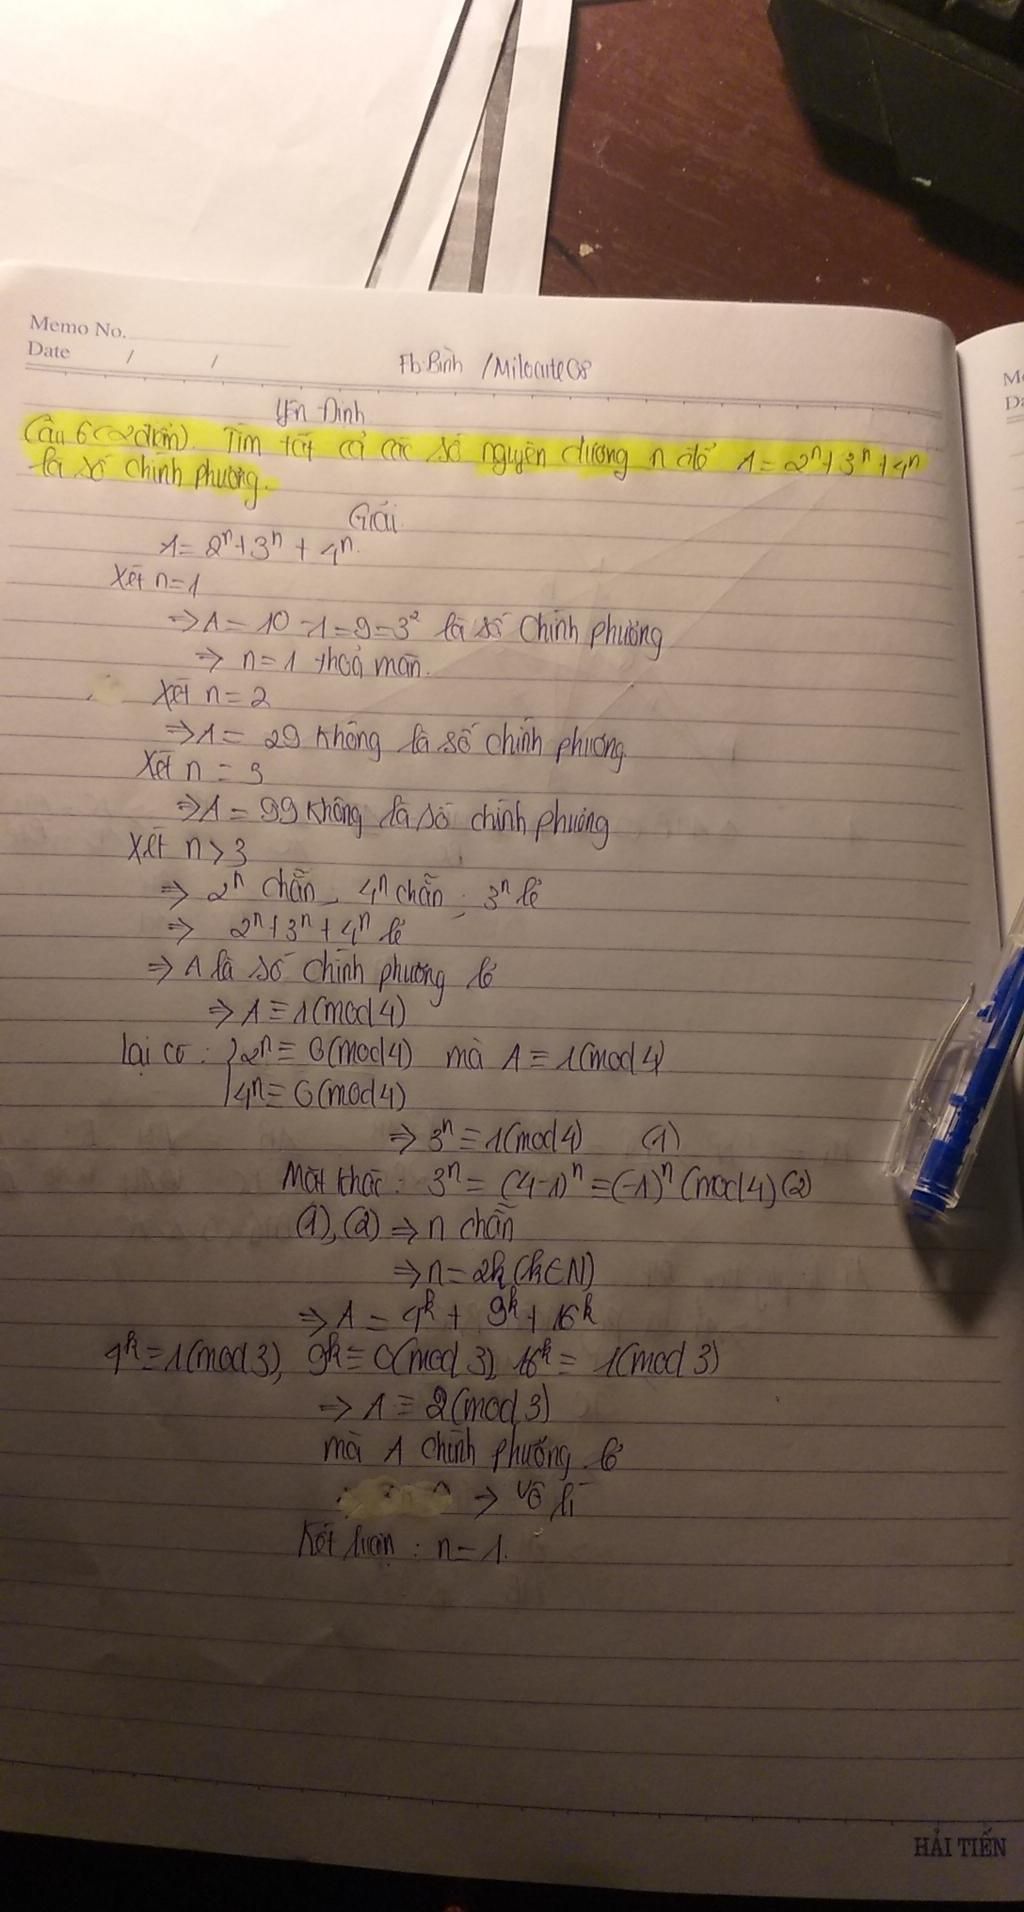 Memo No.
Date / /
Fb: Bình /Milocute08
Yên Định
Câu 6 (2 điểm). Tìm tất cả các số nguyên dương n để A = 2ⁿ + 3ⁿ + 4ⁿ
là số chính phương.
Giải
A = 2ⁿ + 3ⁿ + 4ⁿ.
Xét n = 1
⇒ A = 10 - 1 = 9 = 3² là số chính phương
⇒ n = 1 thoả mãn.
Xét n = 2
⇒ A = 29 không là số chính phương
Xét n = 3
⇒ A = 99 không là số chính phương
Xét n > 3
⇒ 2ⁿ chẵn, 4ⁿ chẵn, 3ⁿ lẻ
⇒ 2ⁿ + 3ⁿ + 4ⁿ lẻ
⇒ A là số chính phương lẻ
⇒ A ≡ 1 (mod 4)
Lại có: { 2ⁿ ≡ 0 (mod 4) mà A ≡ 1 (mod 4)
4ⁿ ≡ 0 (mod 4)
⇒ 3ⁿ ≡ 1 (mod 4) (1)
Mặt khác: 3ⁿ = (4-1)ⁿ ≡ (-1)ⁿ (mod 4) (2)
(1), (2) ⇒ n chẵn
⇒ n = 2k (k ∈ N)
⇒ A = 4ᵏ + 9ᵏ + 16ᵏ
4ᵏ ≡ 1 (mod 3), 9ᵏ ≡ 0 (mod 3), 16ᵏ ≡ 1 (mod 3)
⇒ A ≡ 2 (mod 3)
mà A chính phương lẻ
→ vô lí
Kết luận: n = 1.
HẢI TIẾN